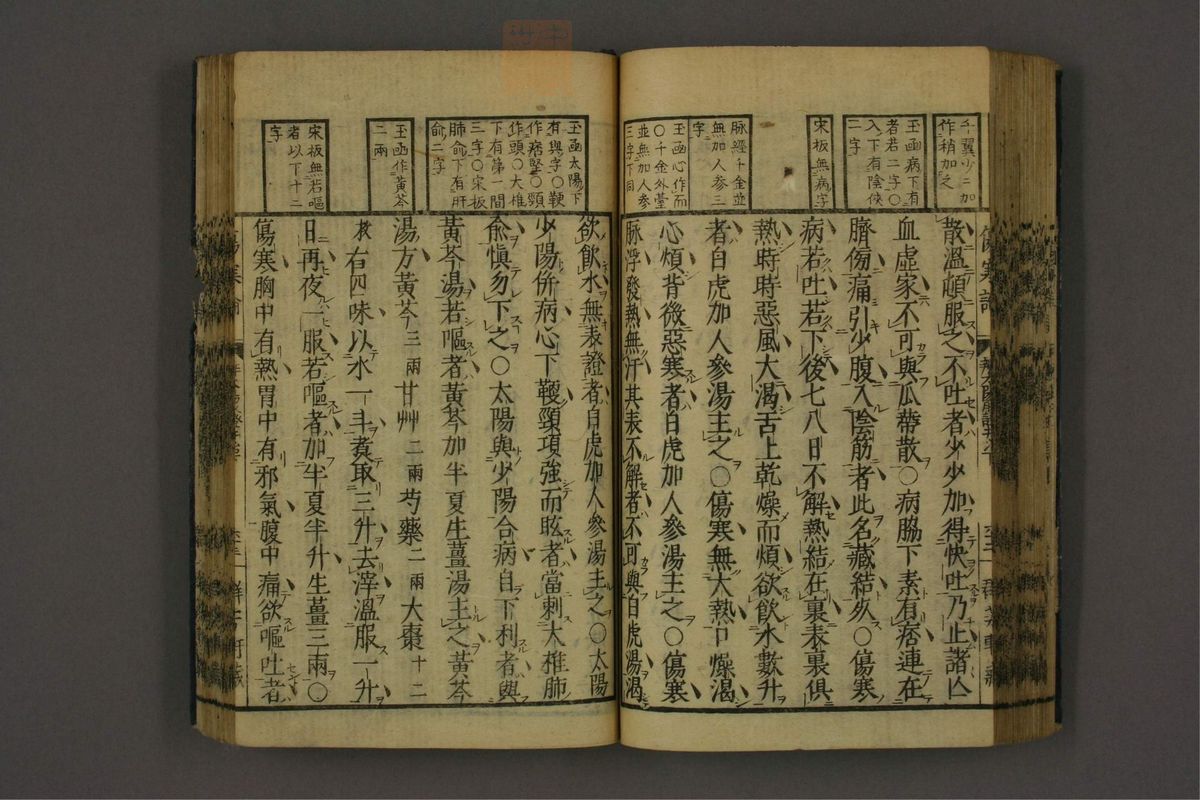 千翼少々加
作稍加之
玉函病下有
者若二字〇
入下有陰俠
二字
宋板無病字
脉經千金並
無加人參三
字
玉函心作而
〇千金外臺
並無加人參
三字下同
散溫頓服之不吐者少少加得快吐乃止諸亾
血虛家不可與瓜蒂散〇病脇下素有痞連在
臍傍痛引少腹入陰筋者此名藏結夊〇傷寒
病若吐若下後七八日不解熱結在裏表裏俱
熱時時惡風大渴舌上乾燥而煩欲飲水數升
者白虎加人參湯主之〇傷寒無大熱口燥渴
心煩背微惡寒者白虎加人參湯主之〇傷寒
脉浮發熱無汗其表不解者不可與白虎湯渴
玉函太陽下
有與字〇鞕
作痞堅〇頸
作頭〇大椎
下有第一間
三字〇宋板
肺俞下有肝
俞二字
玉函作黃芩
二兩
宋板無若嘔
者以下十二
字
欲飲水無表證者白虎加人參湯主之〇太陽
少陽併病心下鞕頸項強而眩者當刺大椎肺
俞愼勿下之〇太陽與少陽合病自下利者與
黃芩湯若嘔者黃芩加半夏生薑湯主之黃芩
湯方黃芩三兩甘艸二兩芍藥二兩大棗十二
枚右四味以水一斗煑取三升去滓溫服一升
日再夜一服若嘔者加半夏半升生薑三兩〇
傷寒胸中有熱胃中有邪氣腹中痛欲嘔吐者